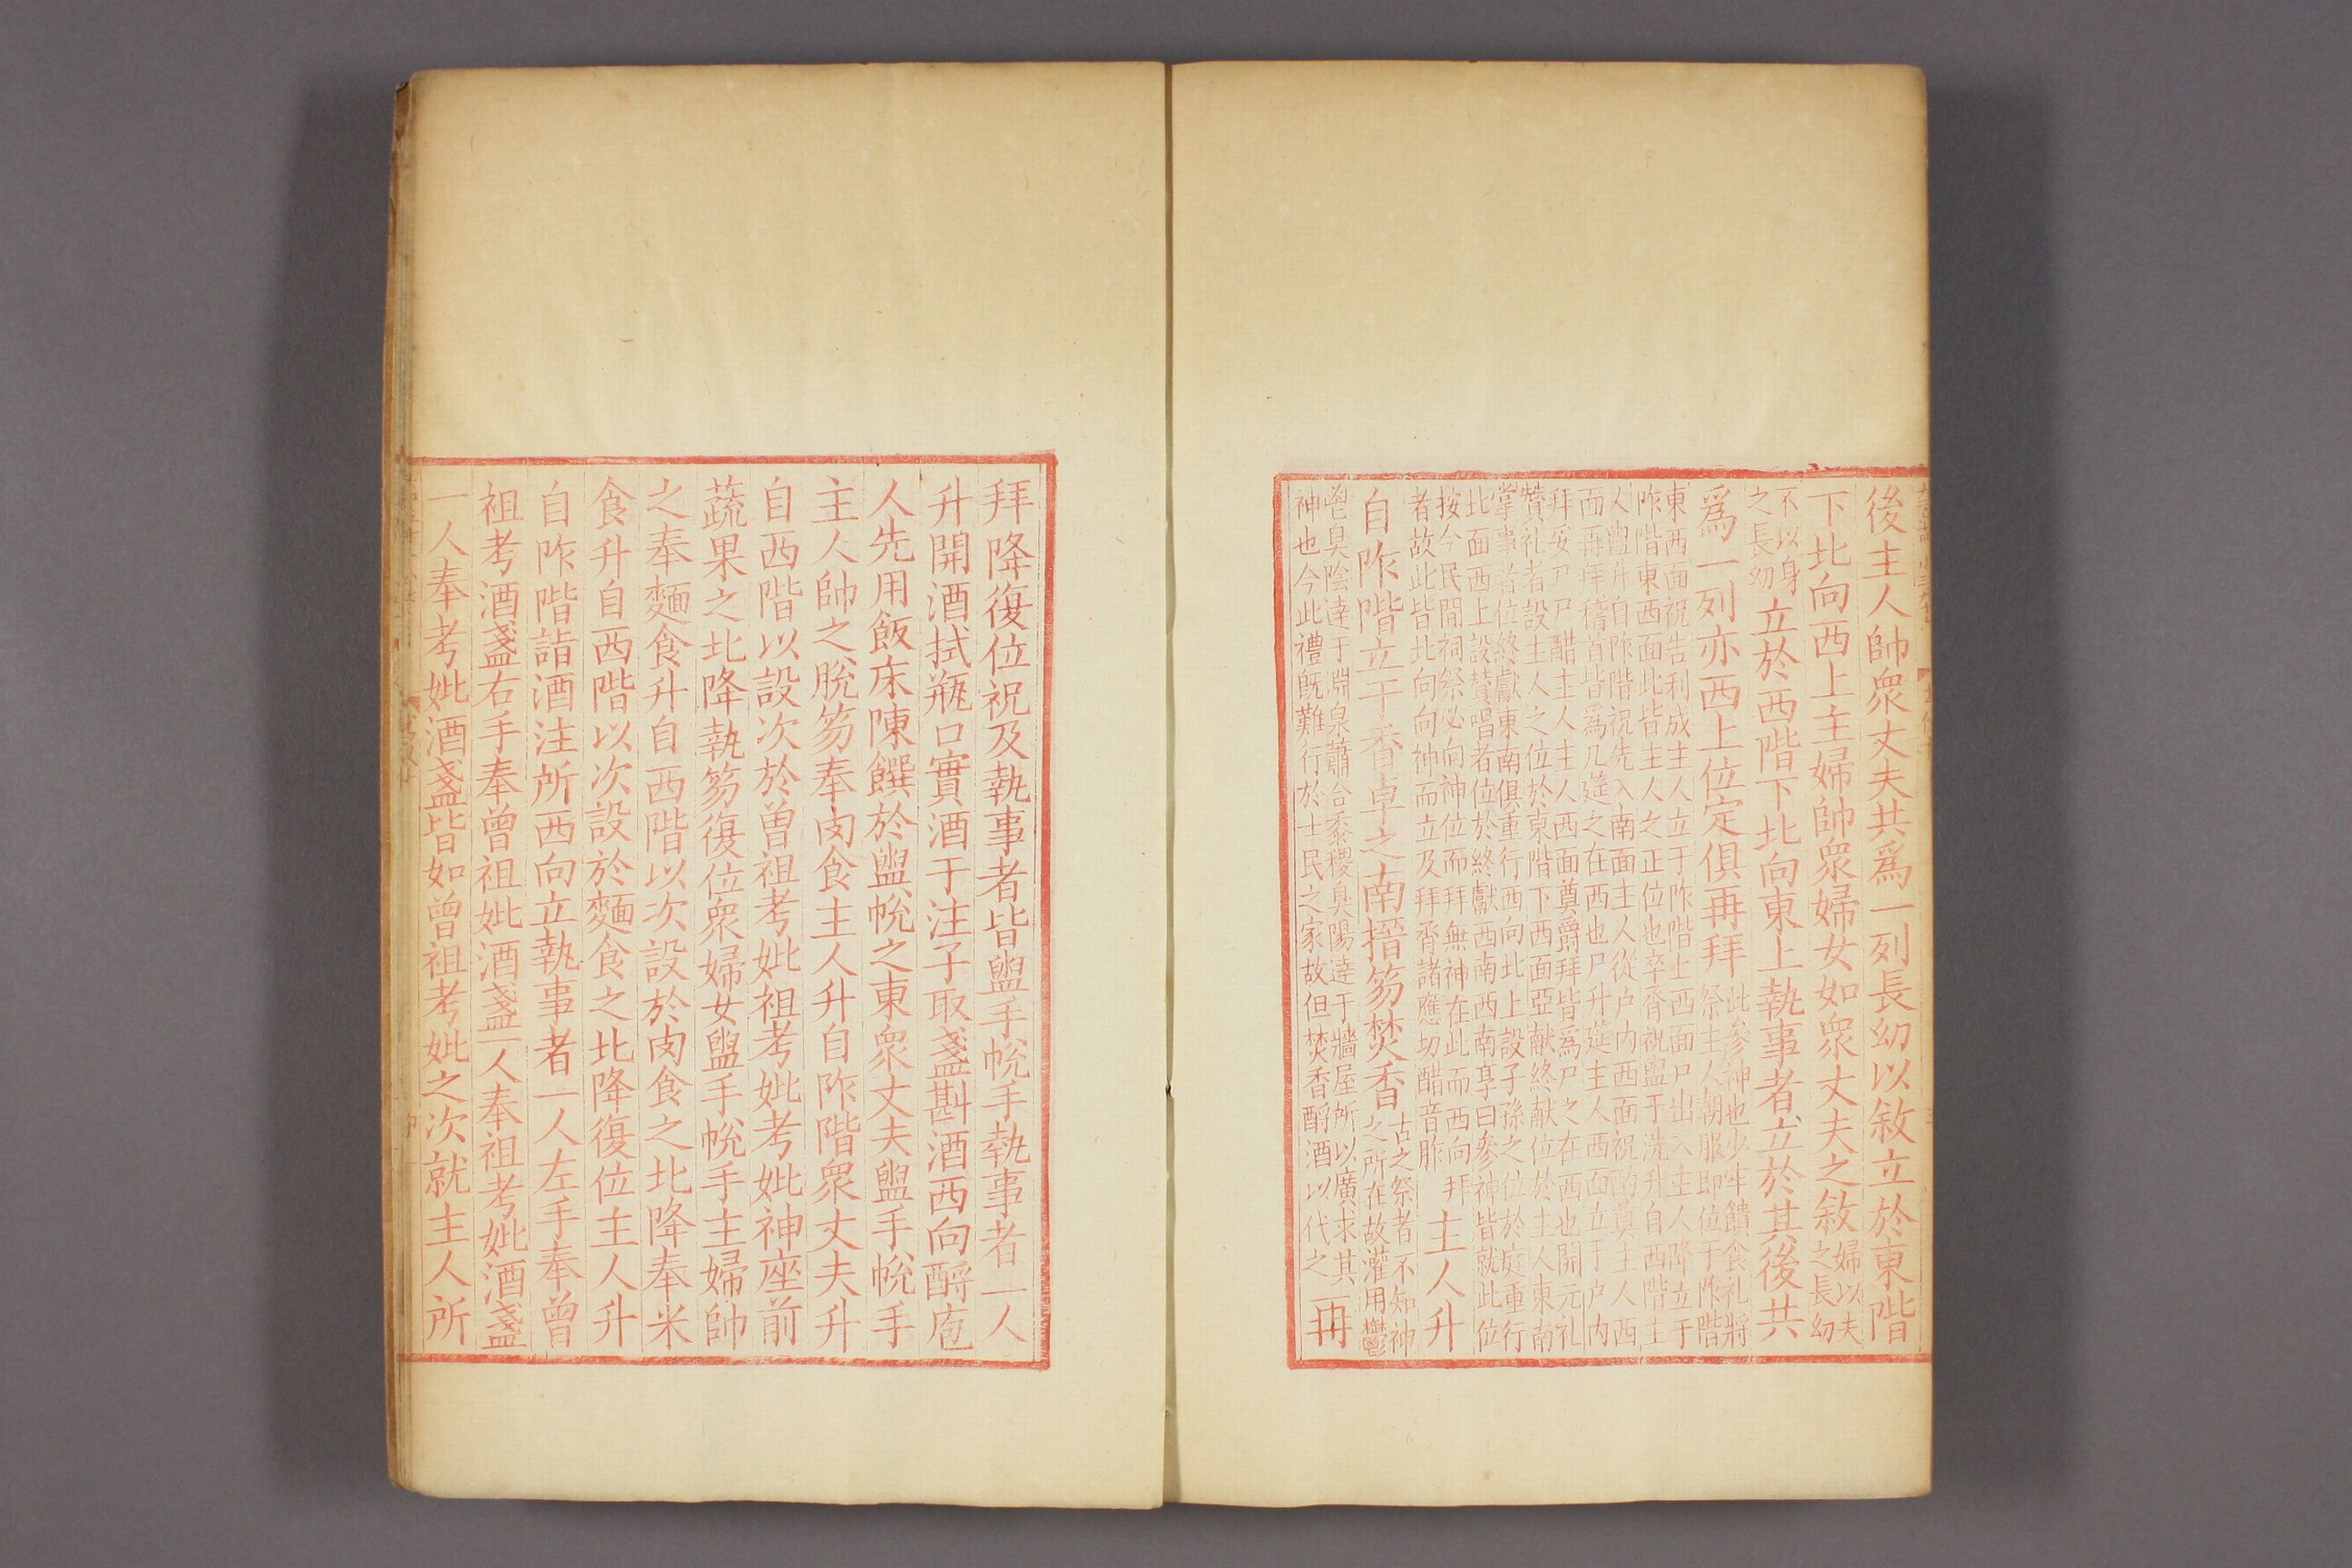 後主人帥衆丈夫共爲一列長幼以敘立於東階
下北向西上主婦帥衆婦女如衆丈夫之敘婦以夫之長幼
不以身之長幼立於西階下北向東上執事者立於其後共
爲一列亦西上位定俱再拜此參神也少牢饋食礼將祭主人朝服即位于阼階
東西面祝告利成主人立于阼階上西面尸出入主人降立于
阼階東西面此皆主人之正位也卒脀祝盥于洗升自西階主
人盥升自阼階祝先入南面主人從户内西面祝酌奠主人西
面再拜稽首皆爲几筵之在西也尸升筵主人西面立于户内
拜妥尸尸醋主人主人西面奠爵拜皆爲尸之在西也開元礼
贊礼者設主人之位於東階下西面亞献終献位於主人東南
掌事者位終獻東南俱重行西向北上設子孫之位於庭重行
北面西上設贊唱者位於終獻西南西南享日參神皆就此位
按今民間祠祭必向神位而拜無神在此而西向拜
者故此皆北向向神而立及拜脀諸應切醋音胙主人升
自阼階立于香卓之南搢笏焚香古之祭者不知神之所在故灌用鬱
鬯臭陰達于淵泉蕭合黍稷臭陽達于牆屋所以廣求其
神也今此禮既難行於士民之家故但焚香酹酒以代之再
拜降復位祝及執事者皆盥手帨手執事者一人
升開酒拭瓶口實酒于注子取盞斟酒西向酹庖
人先用飯床陳饌於盥帨之東衆丈夫盥手帨手
主人帥之脫笏奉肉食主人升自阼階衆丈夫升
自西階以設次於曽祖考妣祖考妣考妣神座前
蔬果之北降執笏復位衆婦女盥手帨手主婦帥
之奉麵食升自西階以次設於肉食之北降奉米
食升自西階以次設於麵食之北降復位主人升
自阼階詣酒注所西向立執事者一人左手奉曾
祖考酒盞右手奉曾祖妣酒盞一人奉祖考妣酒盞
一人奉考妣酒盞皆如曾祖考妣之次就主人所